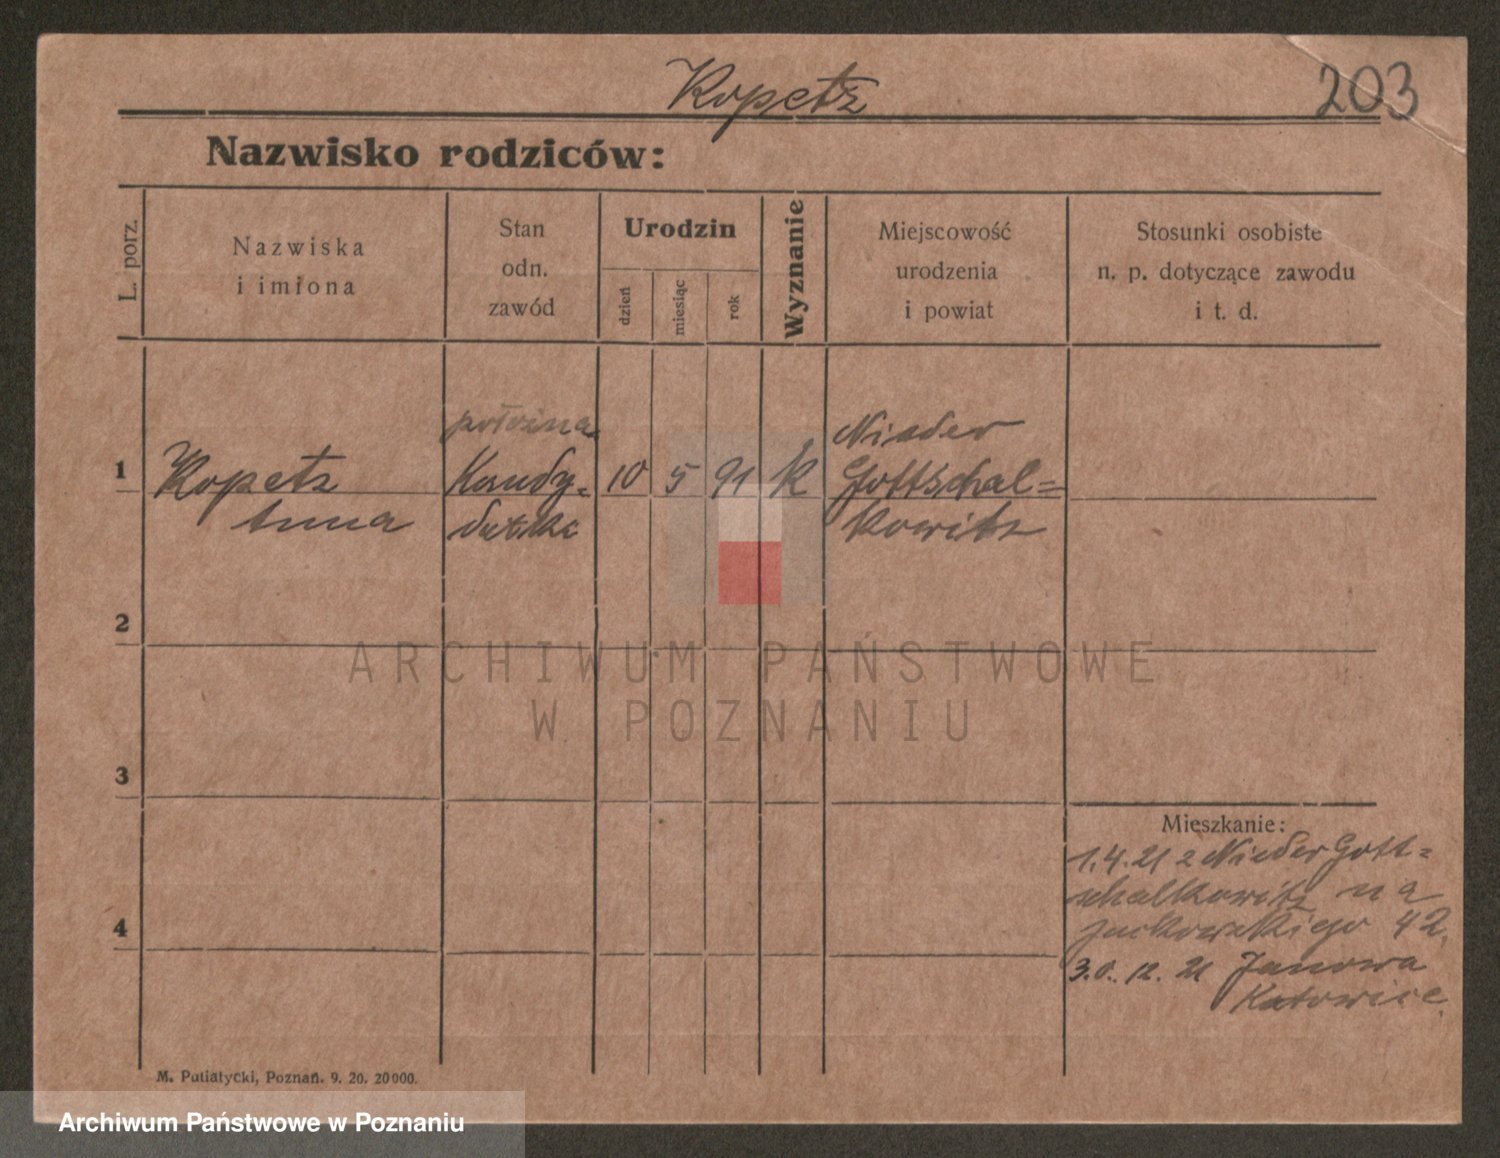 Kopetz
203
Nazwisko rodziców:
L. porz.
Nazwiska
i imiona
Stan
odn.
zawód
Urodzin
dzień
miesiąc
rok
Wyznanie
Miejscowość
urodzenia
i powiat
Stosunki osobiste
n. p. dotyczące zawodu
i t. d.
1
Kopetz
Anna
położna
Kandy-
datka
10
5
91
k
Nieder
Gottschal=
kowitz
2
3
4
Mieszkanie:
1.4.21 z Nieder Gott=
schalkowitz na
Jackowskiego 42.
30.12.21 Janowa
Katowice.
M. Putiatycki, Poznań. 9. 20. 20000.
ARCHIWUM PAŃSTWOWE
W POZNANIU
Archiwum Państwowe w Poznaniu